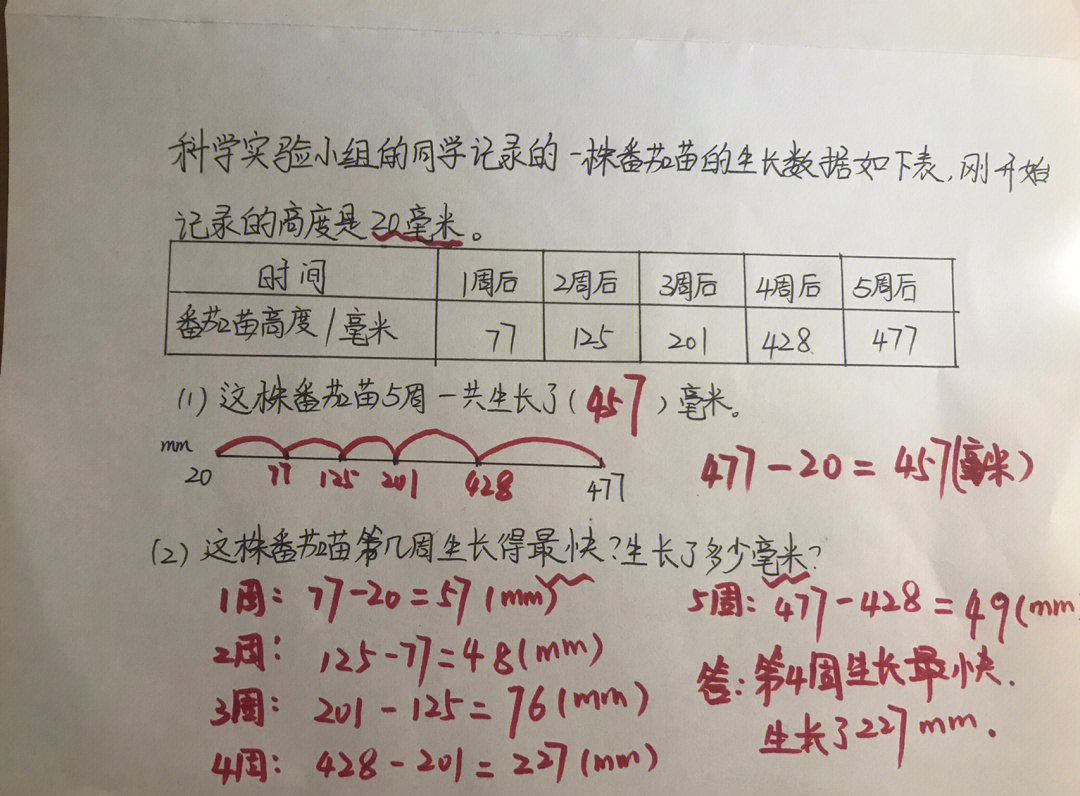 科学实验小组的同学记录的一株番茄苗的生长数据如下表,刚开始
记录的高度是20毫米。
时间 1周后 2周后 3周后 4周后 5周后
番茄苗高度/毫米 77 125 201 428 477
(1)这株番茄苗5周一共生长了(457)毫米。
mm
20 77 125 201 428 477
477-20=457(毫米)
(2)这株番茄苗第几周生长得最快?生长了多少毫米?
1周: 77-20=57(mm)
2周: 125-77=48(mm)
3周: 201-125=76(mm)
4周: 428-201=227(mm)
5周: 477-428=49(mm
答:第4周生长最快.
生长了227mm.